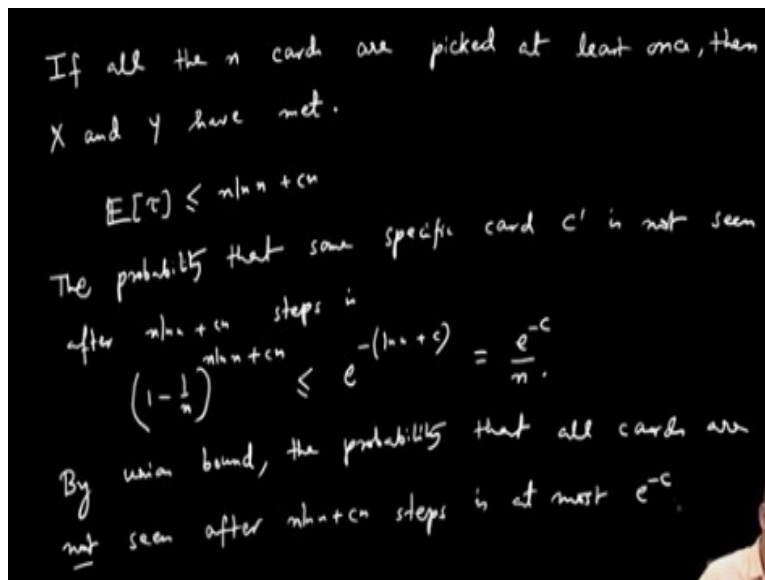 If all the n cards are picked at least once, then
X and Y have met.
E[τ] ≤ n ln n + cn
The probability that some specific card C' is not seen
after n ln n + cn steps is
(1 - 1/n)^(n ln n + cn) ≤ e^(-(ln n + c)) = e^(-c)/n.
By union bound, the probability that all cards are
not seen after n ln n + cn steps is at most e^(-c).